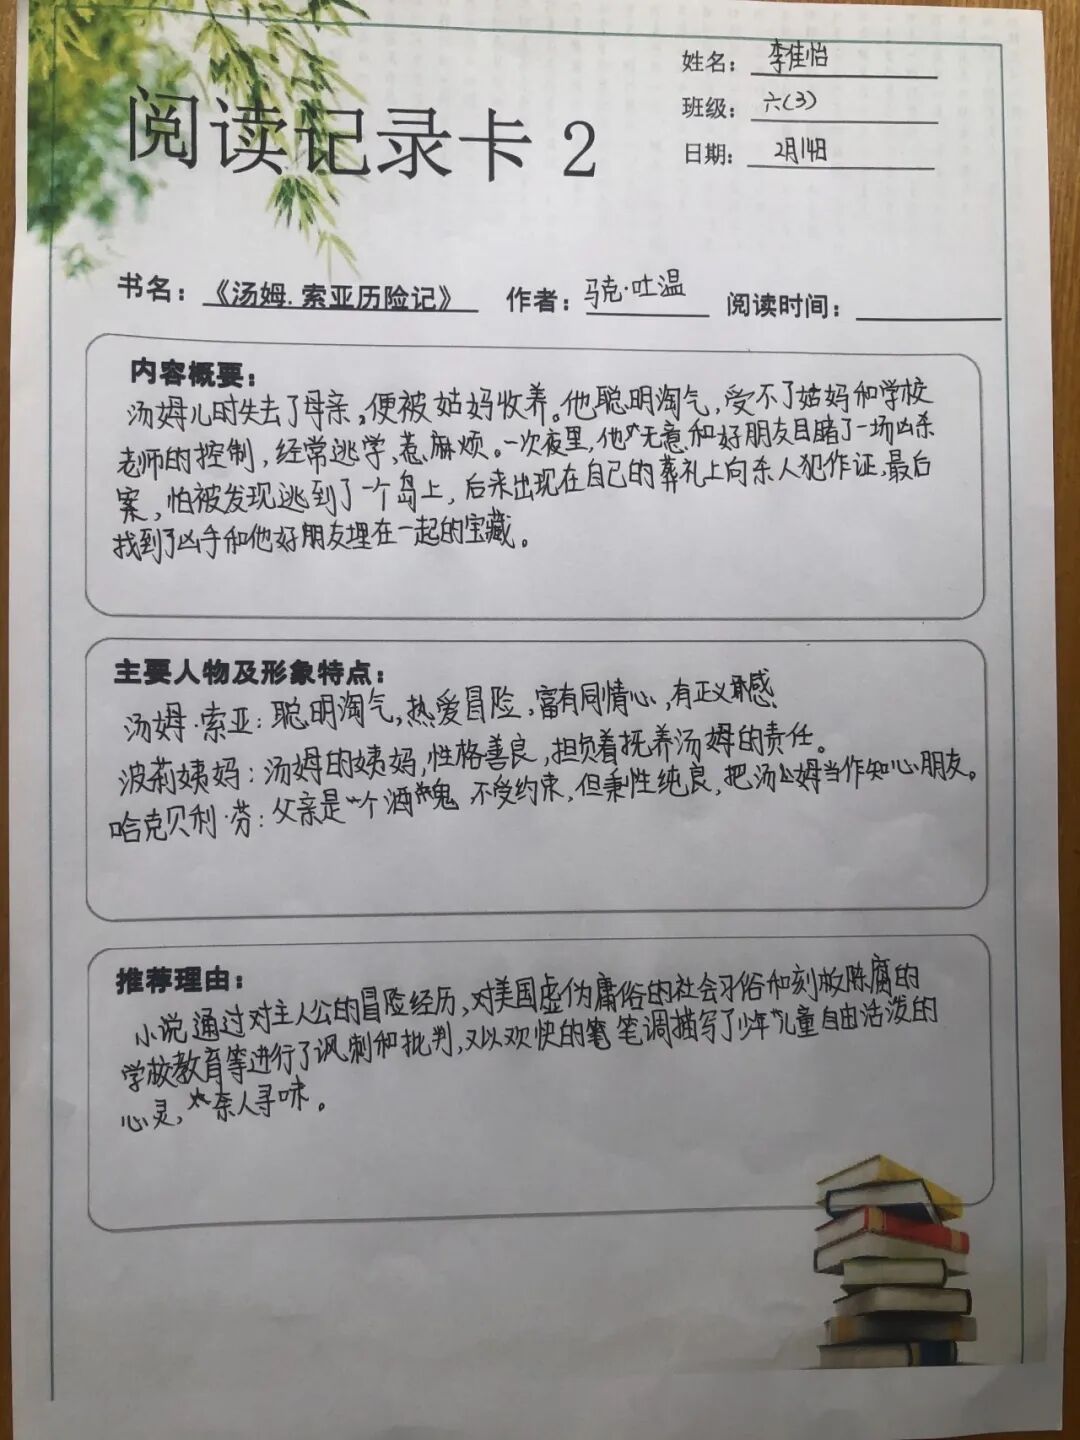 姓名：李佳怡
阅读记录卡 2
班级：六(3)
日期：2月14日
书名：《汤姆.索亚历险记》 作者：马克·吐温 阅读时间：
内容概要：
汤姆儿时失去了母亲,便被姑妈收养。他聪明淘气,受不了姑妈和学校
老师的控制,经常逃学,惹麻烦。一次夜里,他无意和好朋友目睹了一场凶杀
案,怕被发现逃到了一个岛上,后来出现在自己的葬礼上向杀人犯作证,最后
找到了凶手和他好朋友埋在一起的宝藏。
主要人物及形象特点：
汤姆·索亚：聪明淘气,热爱冒险,富有同情心,有正义感
波莉姨妈：汤姆的姨妈,性格善良,担负着抚养汤姆的责任。
哈克贝利·芬：父亲是一个酒鬼 不受约束,但秉性纯良,把汤姆当作知心朋友。
推荐理由：
小说通过对主人公的冒险经历,对美国虚伪庸俗的社会习俗和刻板陈腐的
学校教育等进行了讽刺和批判,又以欢快的笔 笔调描写了少年儿童自由活泼的
心灵,奈人寻味。